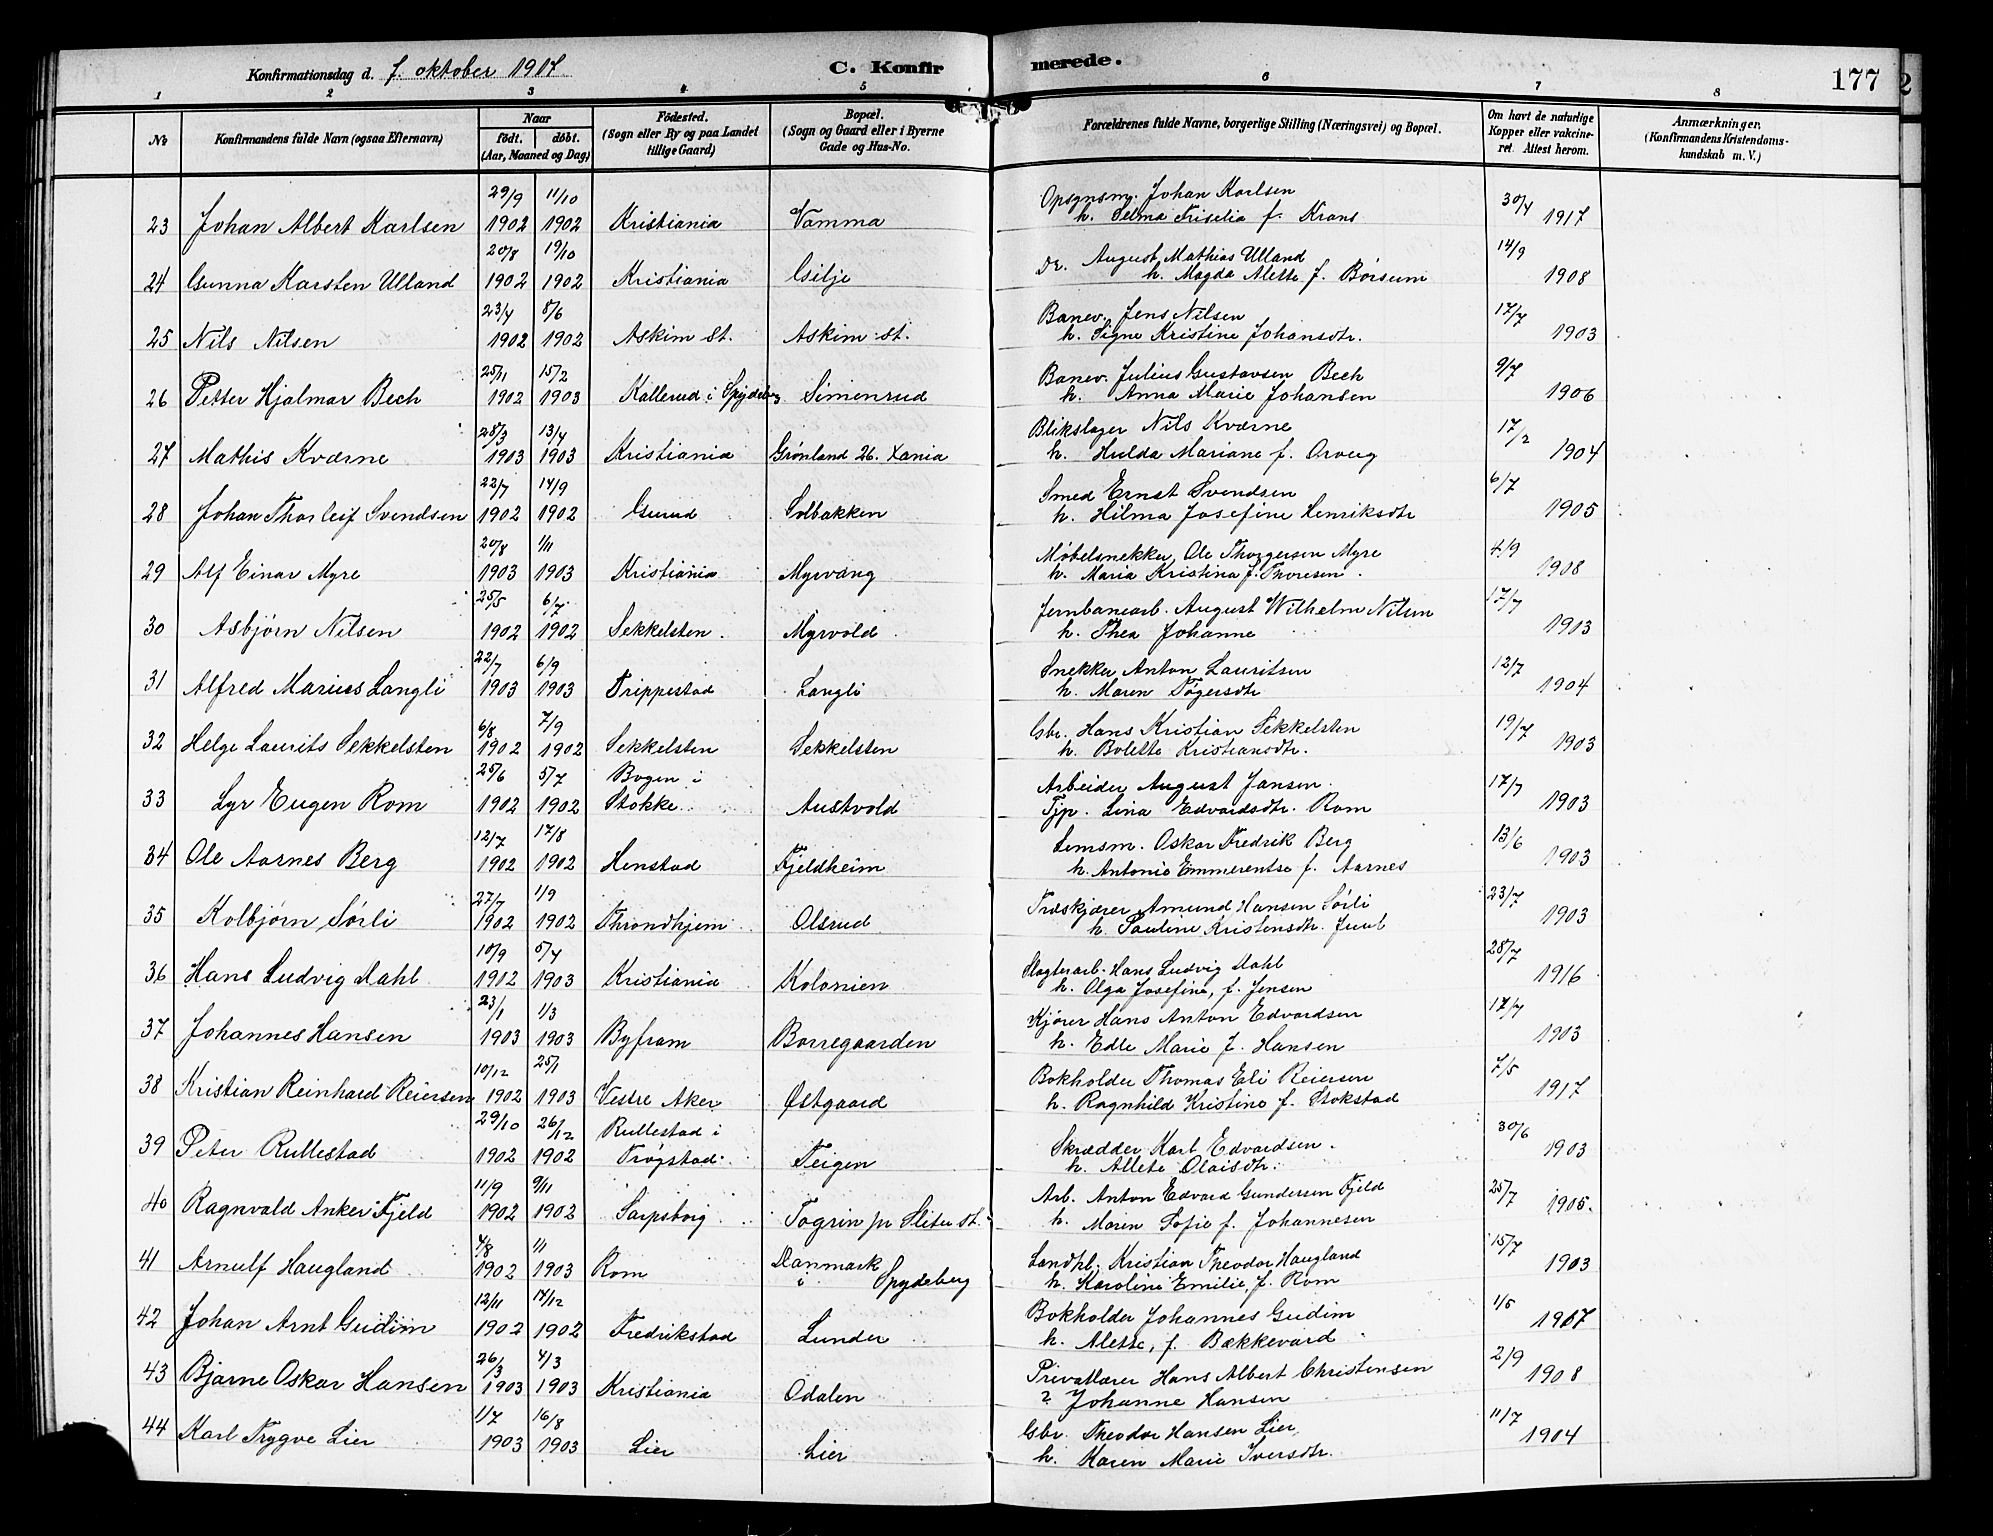 Konfirmationsdag d. 7. oktober 1917
C. Konfirmerede.
177
1 2 3 4 5 6 7 8
No
Konfirmandens fulde Navn (ogsaa Efternavn)
Naar født. døbt. (Aar, Maaned og Dag)
Fødested. (Sogn eller By og paa Landet tillige Gaard)
Bopæl. (Sogn og Gaard eller i Byerne Gade og Hus-No.
Forældrenes fulde Navne, borgerlige Stilling (Næringsvei) og Bopæl.
Om havt de naturlige Kopper eller vakcineret. Attest herom.
Anmærkninger. (Konfirmandens Kristendomskundskab m. V.)
23 Johan Albert Karlsen 29/9 1902 11/10 1902 Kristiania Vamma Opsynsm. Johan Karlsen 30/4 1917
h. Selma f. Krans
24 Gunna Karsten Ulland 20/8 1902 19/10 1902 Kristiania Gilje Dr. August Mathias Ulland 14/9 1908
h. Magda Alette f. Børsum
25 Nils Nilsen 23/4 1902 8/6 1902 Askim St. Askim st. Banev. Jens Nilsen 17/7 1903
h. Signe Kristine Johansdtr.
26 Petter Hjalmar Bech 25/11 1902 15/2 1903 Kallerud i Spydeberg Simenrud Banev. Julius Gustavsen Bech 9/7 1906
h. Anna Marie Johansen
27 Mathis Kværne 28/3 1903 13/4 1903 Kristiania Grønland 26. Xania Blikslager Nils Kværne 17/2 1904
h. Hulda Mariane f.
28 Johan Thorleif Svendsen 22/7 1902 14/9 1902 Gurud Solbakken Smed Ernst Svendsen 6/7 1905
h. Hilma Josefine Henriksdtr
29 Alf Einar Myre 20/8 1903 1/11 1903 Kristiania Myrvang Møbelsnekker Ole Thorgersen Myre 4/9 1908
h. Maria Kristina f. Thoresen.
30 Asbjørn Nilsen 25/5 1902 6/7 1902 Sekkelsten. Myrvold Jernbanearb. August Wilhelm Nilsen 17/7 1903
h. Thea Johanne
31 Alfred Marius Langli 22/7 1903 6/9 1903 Trippestad Langli Snekker Anton Lauritsen 12/7 1904
h. Maren Tøgersdtr
32 Helge Laurits Sekkelsten 6/8 1902 7/9 1902 Sekkelsten Sekkelsten Gbr. Hans Kristian Sekkelsten 19/7 1903
h. Bolette Kristiansdtr.
33 Lyr Eugen Rom 25/6 1902 5/7 1902 Bogen i Stokke Austvold Arbeider August Jansen 17/7 1903
Tjp. Lina Edvardsdtr. Rom
34 Ole Aarnes Berg 12/7 1902 17/8 1902 Henstad Fjeldheim Lensm. Oskar Fredrik Berg 13/6 1903
h. Antonie Emmerentse f. Aarnes
35 Kolbjørn Sørli 27/7 1902 1/9 1902 Throndhjem Olsrud Træskjærer Amund Hansen Sørli 23/7 1903
h. Pauline Kristensdtr. Juul
36 Hans Ludvig Dahl 10/9 1902 5/4 1903 Kristiania Kolonien Slagterarb. Hans Ludvig Dahl 28/7 1916
h. Olga Josefine, f. Jensen
37 Johannes Hansen 23/1 1903 1/3 1903 Byfram Borregaarden Kjører Hans Anton Edvardsen 17/7 1903
h. Edle Marie f. Hansen
38 Kristian Reinhard Reiersen 10/12 1902 25/1 1903 Vestre Aker Østgaard Bokholder Thomas Eli Reiersen 7/5 1917
h. Ragnhild Kristine f. Stokstad
39 Peter Rullestad 29/10 1902 26/12 1902 Rullestad i Trøgstad Teigen Skrædder Karl Edvardsen. 30/6 1903
h. Allete Olaisdtr.
40 Ragnvald Anker Fjeld 11/9 1902 9/11 1902 Sarpsborg Togrin pr Sliter St. Arb. Anton Edvard Gundersen Fjeld 25/7 1905.
h. Maren Sofie f. Johannesen
41 Arnulf Haugland 4/8 1902 1/1 1903 Rom Danmark i Spydeberg Landhl. Kristian Theodor Haugland 15/7 1903
h. Karoline Emilie, f. Rom
42 Johan Arnt Gudim 12/11 1902 14/12 1902 Fredrikstad Lunder Bokholder Johannes Gudim 1/5 1907
h. Alette, f. Bækkevard
43 Bjarne Oskar Hansen 26/3 1903 4/3 1903 Kristiania Odalen Privatlærer Hans Albert Christensen 2/9 1908
? Johanne Hansen
44 Karl Trygve Lier 1/7 1903 16/8 1903 Lier Lier Gbr. Theodor Hansen Lier 11/7 1904
h. Karen Marie Iversdtr.